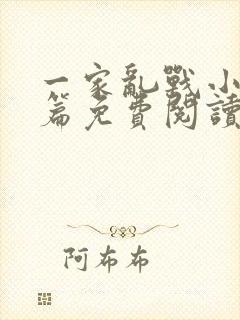 一家亂戰小
篇免費閱讀
阿布布